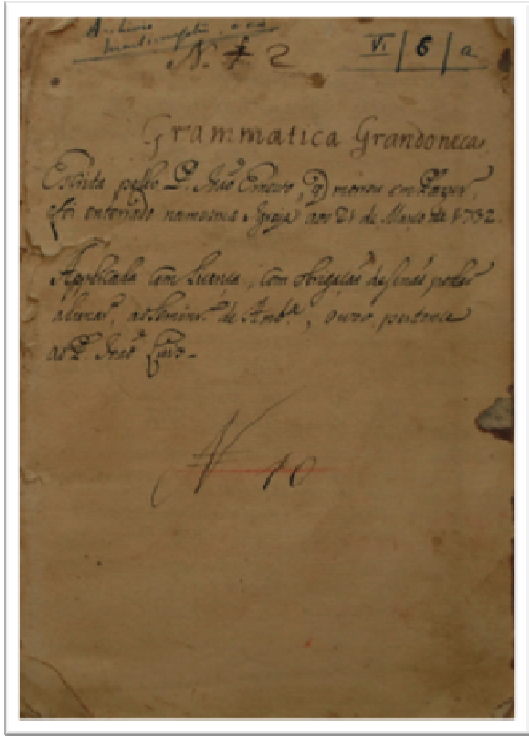 N. 1 2
VI / 6 / a
Grammatica Grandonica
Escrita pello P. João Ernesto, q̃ morou em
e foi enterrado na mesma Igreja aos 21 de Março de 1732.
Applicada com licença, com obrigação de senão poder
alienar, ao Semin.º de Amb.ª, o uzo pertence
ao P. João
N 10